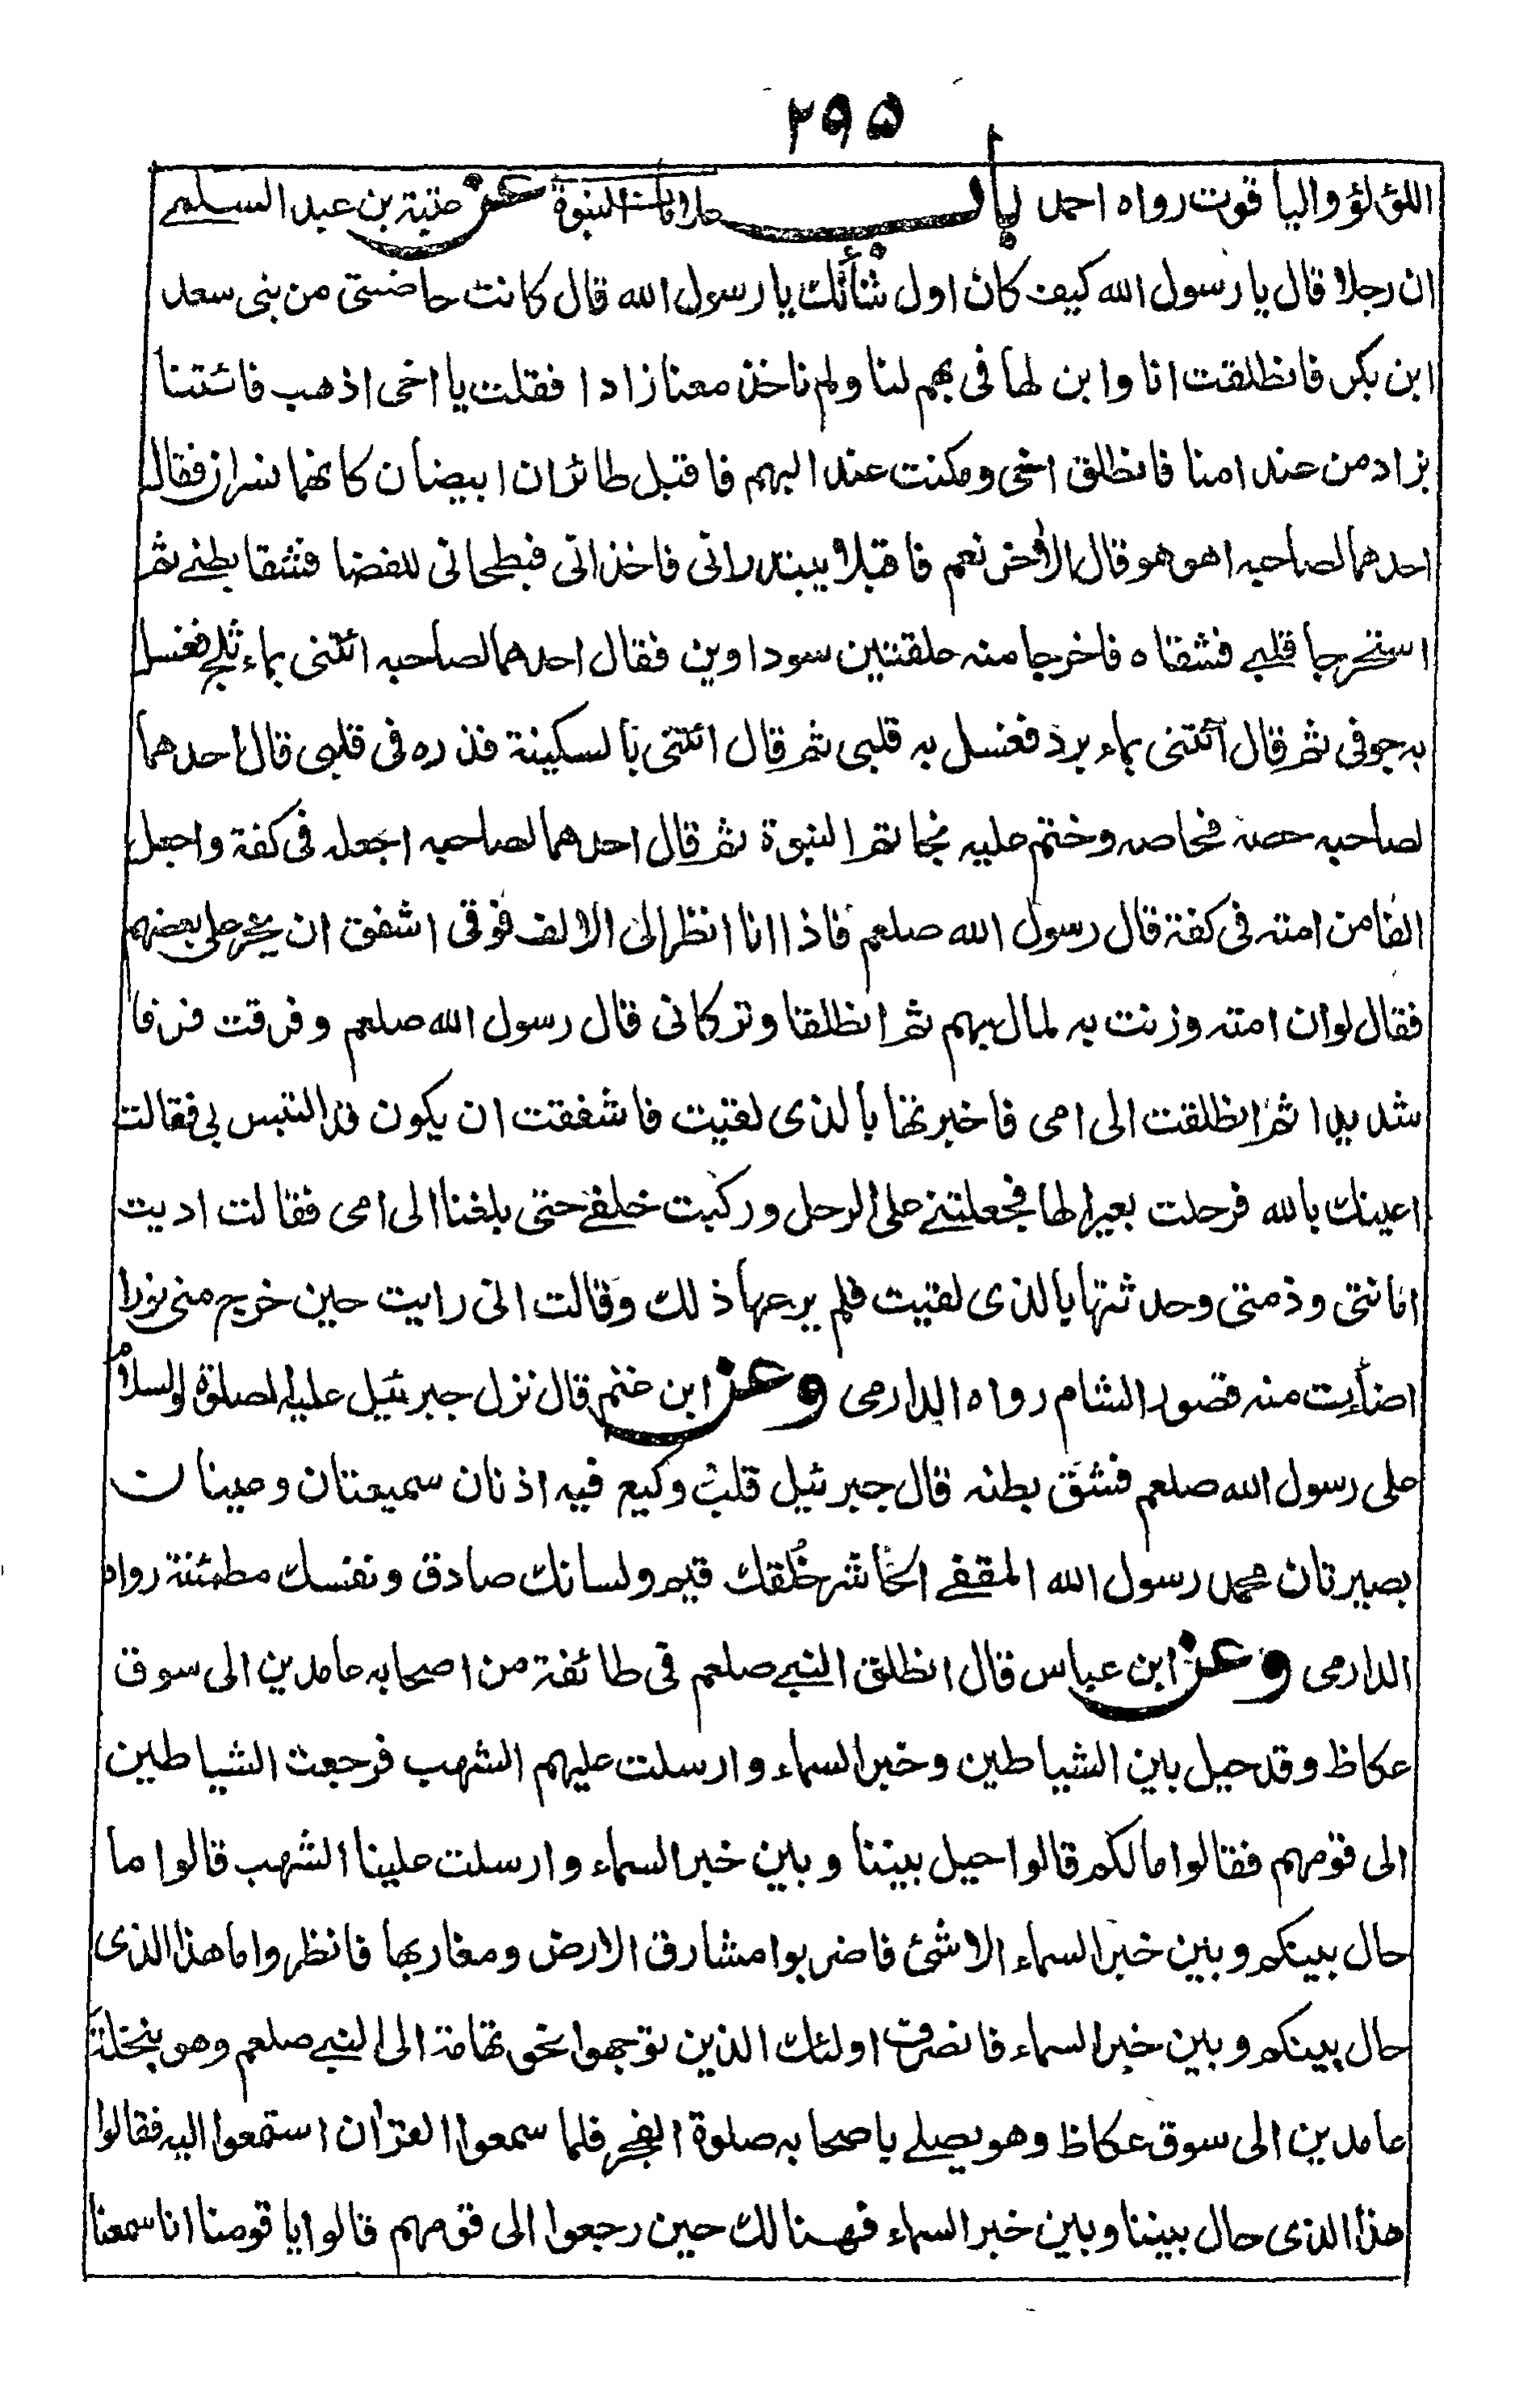 ٢٩٥
اللؤلؤ والياقوت رواه احمد باب علامات النبوة عن عتبة بن عبد السلمي
ان رجلا قال يا رسول الله كيف كان اول شأنك يا رسول الله قال كانت حاضنتي من بنى سعد
ابن بكر فانطلقت انا وابن لها فى بهم لنا ولم ناخذ معنا زادا فقلت يا اخى اذهب فائتنا
بزاد من عند امنا فانطلق اخى ومكثت عند البهم فاقبل طائران ابيضان كانهما نسران فقال
احدهما لصاحبه اهو هو قال الاخر نعم فاقبلا يبتدرانى فاخذانى فبطحانى للقضا فشقا بطنے ثم
استخرجا قلبے فشقاه فاخرجا منه علقتين سوداوين فقال احدهما لصاحبه ائتنى بماء ثلج فغسل
به جوفى ثم قال ائتنى بماء برد فغسل به قلبى ثم قال ائتنى بالسكينة فذره فى قلبى قال احدهما
لصاحبه حصه فحاصه وختم عليه بخاتم النبوة ثم قال احدهما لصاحبه اجعله فى كفة واجعل
الفا من امته فى كفة قال رسول الله صلعم فاذا انا انظر الى الالف فوقى اشفق ان يخر على بعضهم
فقال لو ان امته وزنت به لمال بهم ثم انطلقا وتركانى قال رسول الله صلعم وفرقت فرقا
شديدا ثم انطلقت الى امى فاخبرتها بالذى لقيت فاشفقت ان يكون قد التبس بى فقالت
اعيذك بالله فرحلت بعيرا لها فجعلتنے على الرحل وركبت خلفے حتى بلغنا الى امى فقالت اديت
امانتى وذمتى وحدثتها بالذى لقيت فلم يرعها ذلك وقالت انى رايت حين خرج منى نورا
اضاءت منه قصور الشام رواه الدارمى وعن ابن غنم قال نزل جبرئيل عليه الصلوة والسلام
على رسول الله صلعم فشق بطنه قال جبرئيل قلب وكيع فيه اذنان سميعتان وعينان
بصيرتان محمد رسول الله المقفے الحاشر خلقك قيم ولسانك صادق ونفسك مطمئنة رواه
الدارمى وعن ابن عباس قال انطلق النبے صلعم فى طائفة من اصحابه عامدين الى سوق
عكاظ وقد حيل بين الشياطين وخبر السماء وارسلت عليهم الشهب فرجعت الشياطين
الى قومهم فقالوا مالكم قالوا حيل بيننا وبين خبر السماء وارسلت علينا الشهب قالوا ما
حال بينكم وبين خبر السماء الا شئ فاضربوا مشارق الارض ومغاربها فانظروا ما هذا الذى
حال بينكم وبين خبر السماء فانصرف اولئك الذين توجهوا نحو تهامة الى النبے صلعم وهو بنخلة
عامدين الى سوق عكاظ وهو يصلے باصحابه صلوة الفجر فلما سمعوا القرآن استمعوا اليه فقالوا
هذا الذى حال بيننا وبين خبر السماء فهنالك حين رجعوا الى قومهم قالوا يا قومنا انا سمعنا